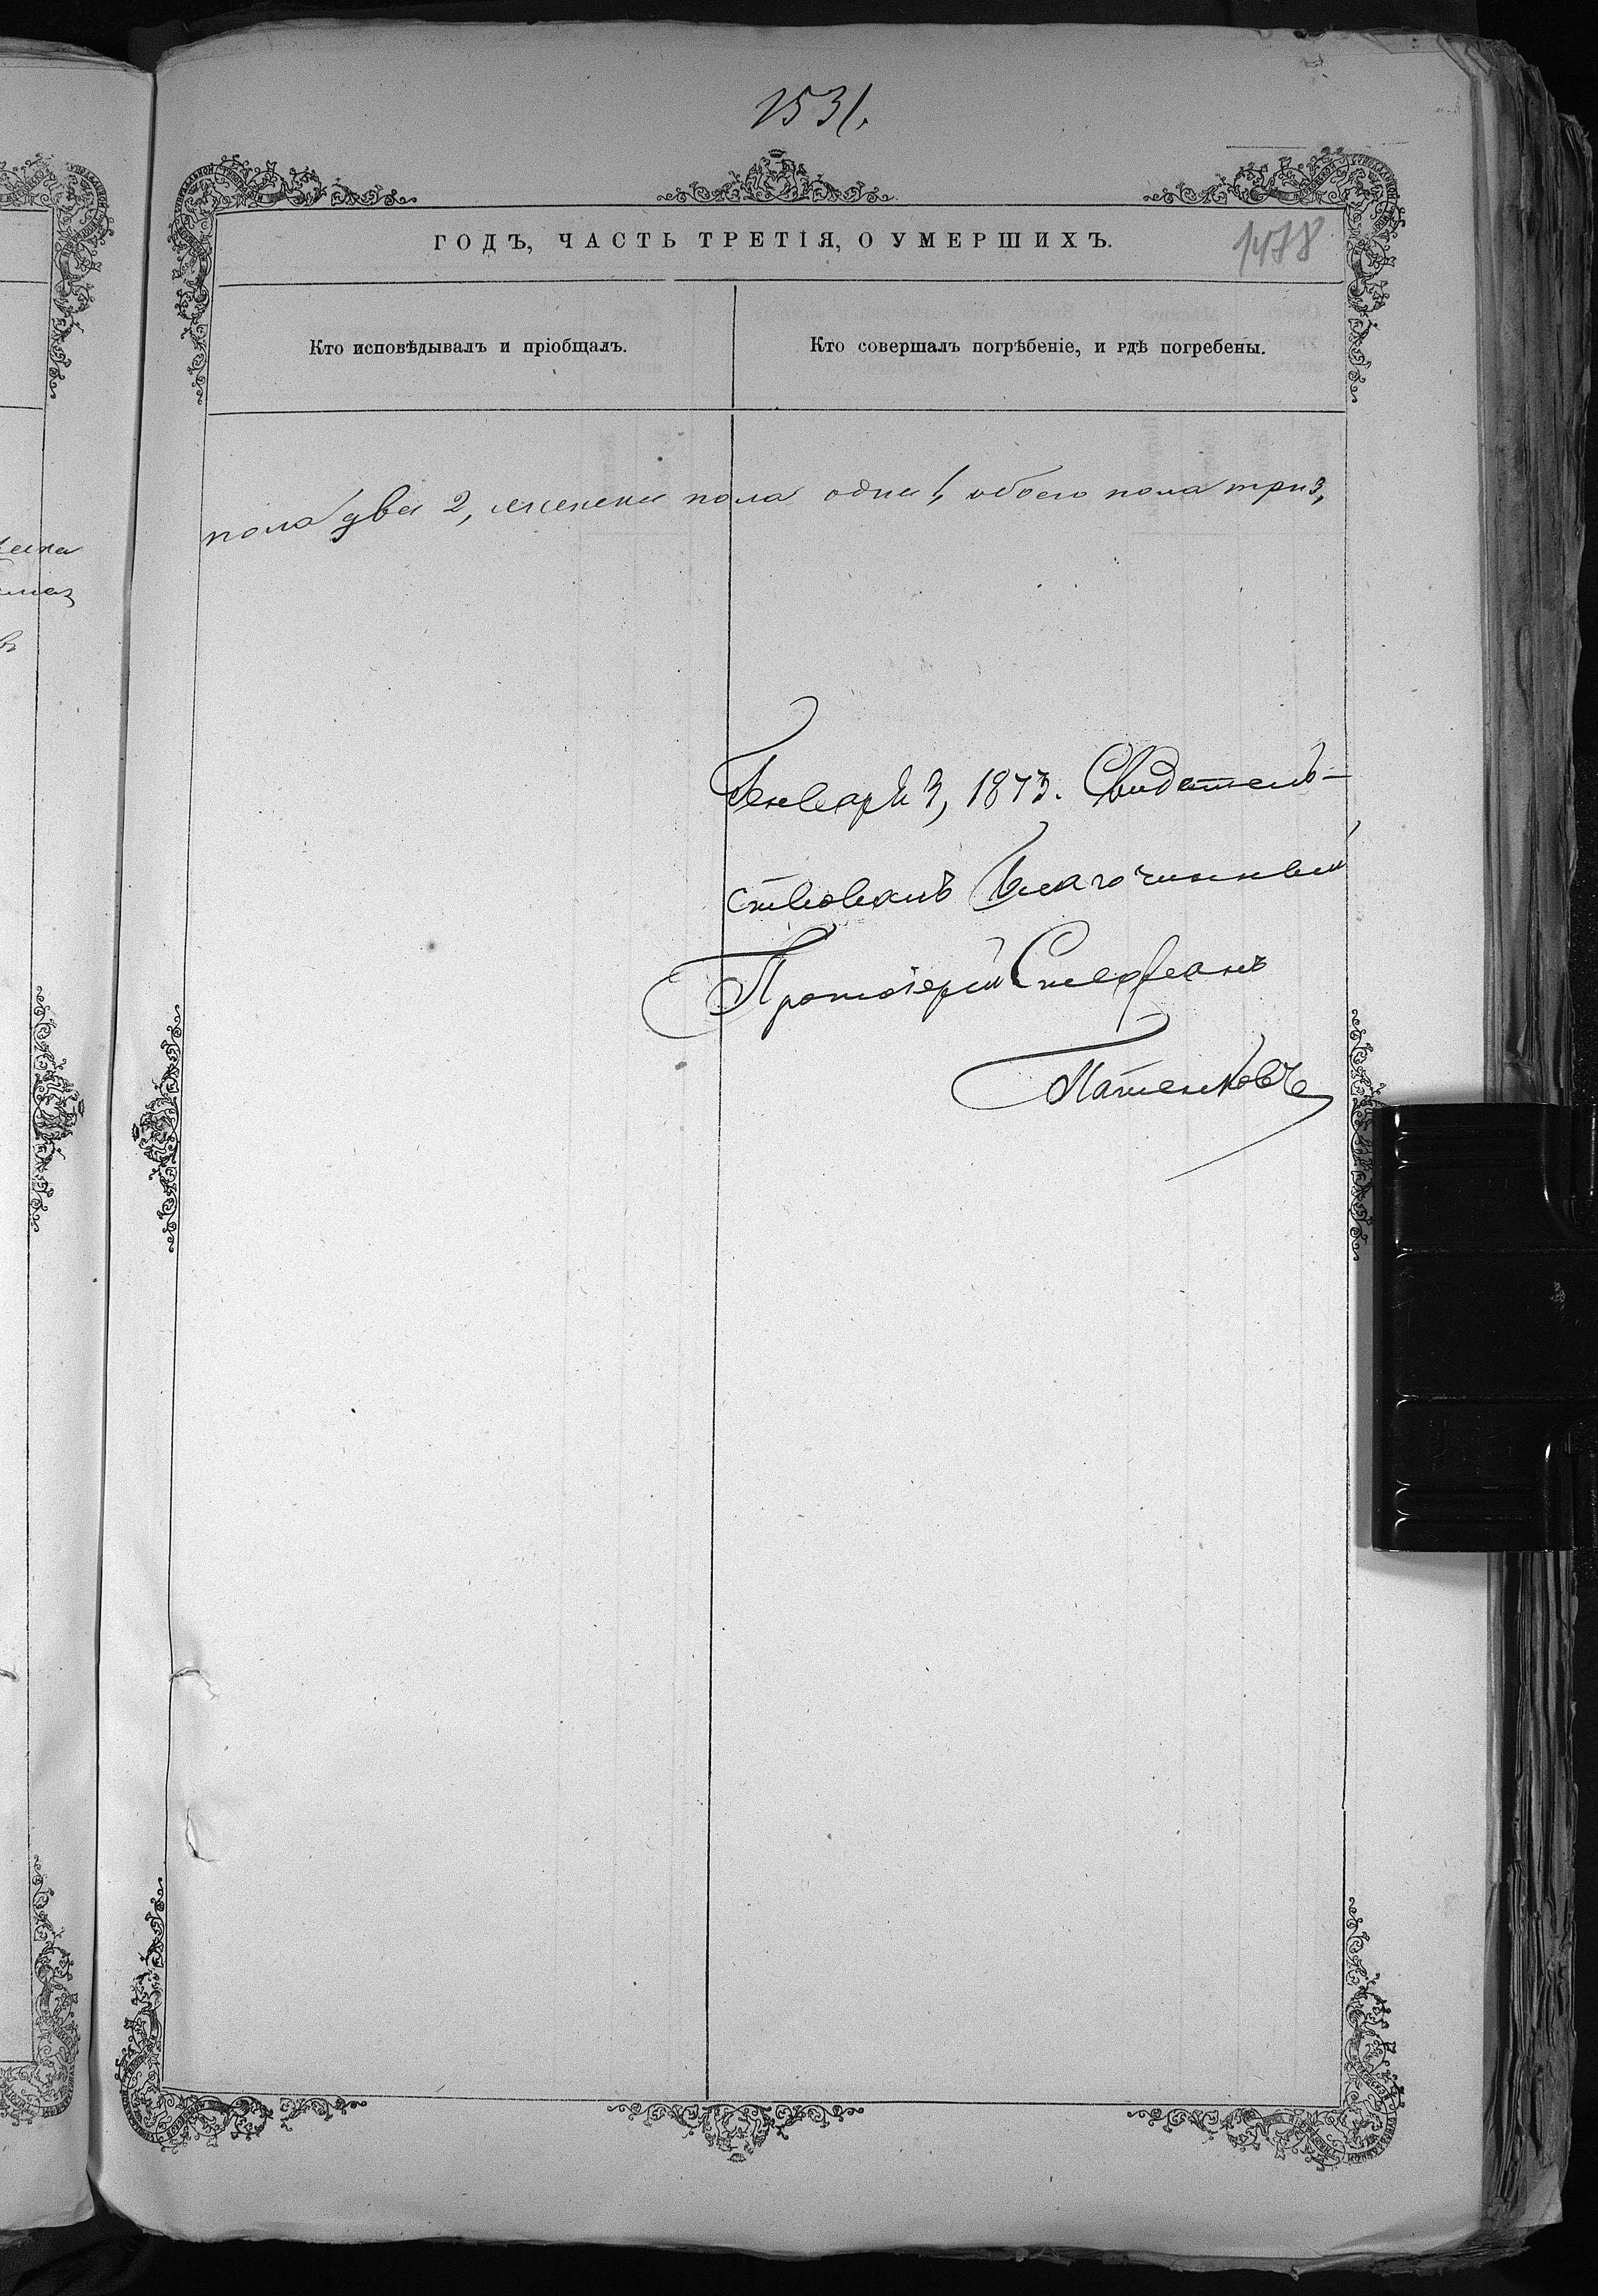 1531.
ГОДЪ, ЧАСТЬ ТРЕТІЯ, О УМЕРШИХЪ.
1478
Кто исповѣдывалъ и пріобщалъ.
Кто совершалъ погрѣбеніе, и гдѣ погребены.
пола два 2, женска пола одна 1, обоего пола три 3,
Генваря 3, 1873. Свидѣтель-
ствовалъ Благочинный
Протоіерей Стефанъ